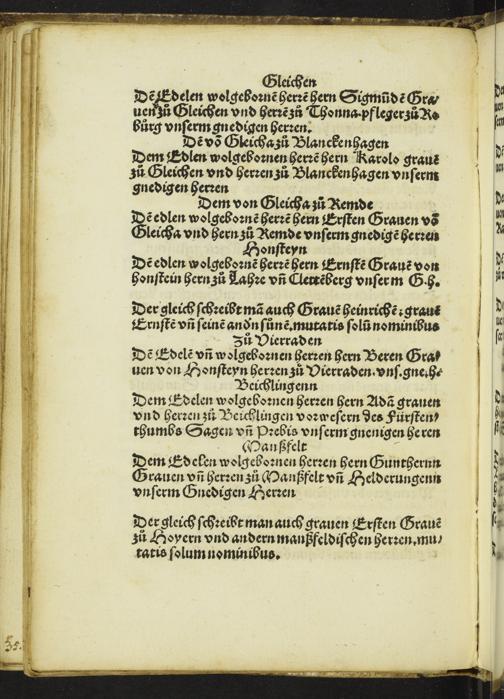 Gleichen
Dē Edelen wolgebornē herrē hern Sigmūdē Gra⸗
uen zů Gleichen vnd herrē zů Thonna pfleger zů Ro
bůrg vnserm gnedigen herren.
Dē vō Gleicha zů Blanckenhagen
Dem Edlen wolgebornen herrē hern Karolo grauē
zů Gleichen vnd herren zů Blanckenhagen vnserm
gnedigen herren
Dem von Gleicha zů Remde
Dē edlen wolgebornē herrē hern Ersten Grauen vō
Gleicha vnd hern zů Remde vnserm gnedigē herren
Honsteyn
Dē edlen wolgebornē herrē hern Ernstē Grauē von
honstein hern zů Lahre vn̄ Clettēberg vnserm G.h.
Der gleich schreibt mā auch Grauē heinrichē: grauē
Ernstē vn̄ seinē andn sūnē, mutatis solū nominibus
Zů Vierraden
Dē Edelē vn̄ wolgebornen herren hern Beren Gra⸗
uen von Honsteyn herren zů Vierraden. vns. gne. he
Beichlingenn
Dem Edelen wolgebornen herren hern Adā grauen
vnd herren zů Beichlingen vorwesern des Fůrsten⸗
thumbs Sagen vn̄ Prebis vnserm gnenigen heren
Manßfelt
Dem Edelen wolgebornen herren hern Gunthernn
Grauen vn̄ herren zů Manßfelt vn̄ Helderungenn
vnserm Gnedigen Herren
Der gleich schreibt man auch grauen Ersten Grauē
zů Hoyern vnd andern manßfeldischen herren, mu⸗
tatis solum nominibus.
35.